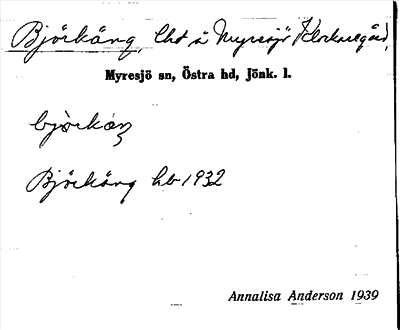 Björkäng, Lht å Myresjö Klockaregård,
Myresjö sn, Östra hd, Jönk. l.
björkäŋ
Björkäng hb 1932
Annalisa Anderson 1939